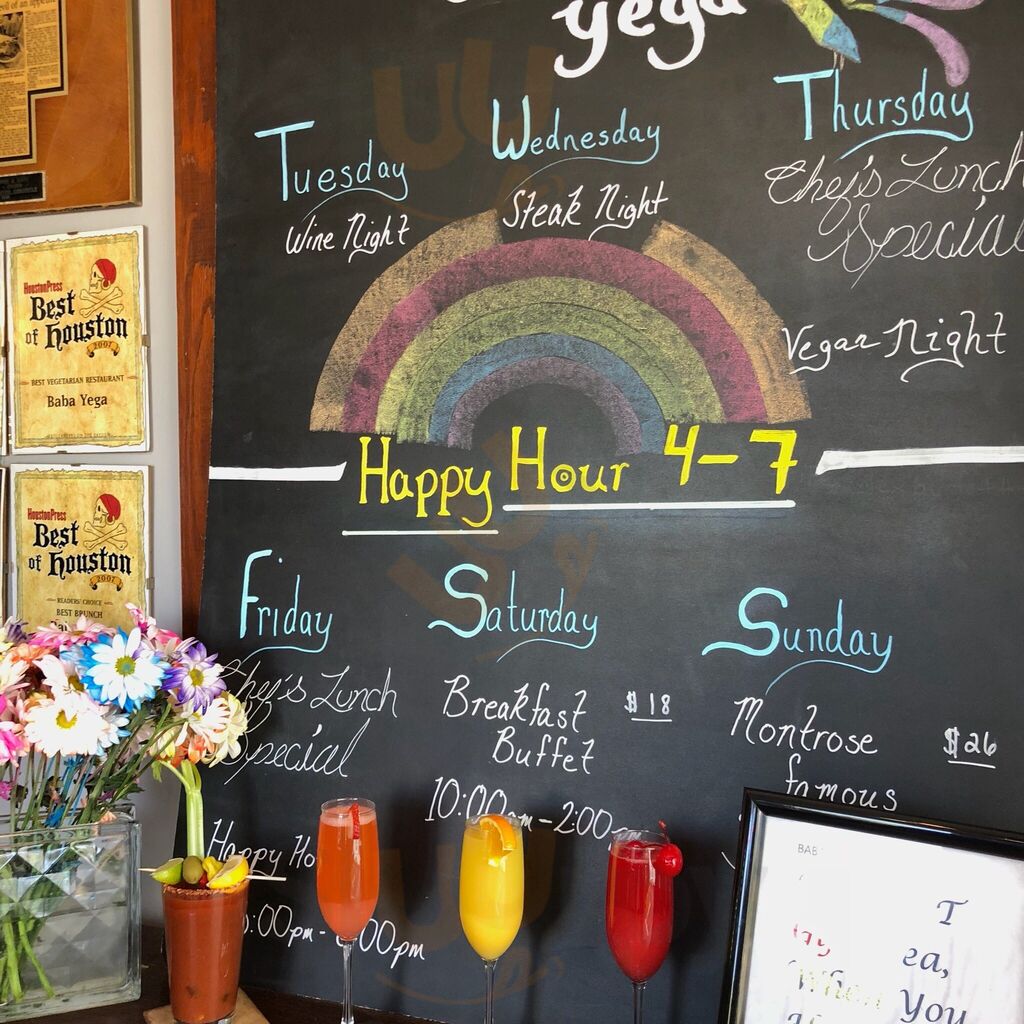 yega
Tuesday
Wine Night
Wednesday
Steak Night
Thursday
Chef's Lunch
Special
Vegan Night
Happy Hour 4-7
Friday
Chef's Lunch
Special
Happy Ho
00pm-
00pm
Saturday
Breakfast $18
Buffet
10:00 -2:00
Sunday
Montrose $26
famous
HoustonPress
Best
of Houston
2007
BEST VEGETARIAN RESTAURANT
Baba Yega
HoustonPress
Best
of Houston
2007
READERS' CHOICE
BEST BRUNCH
BAB
T
ea,
When You